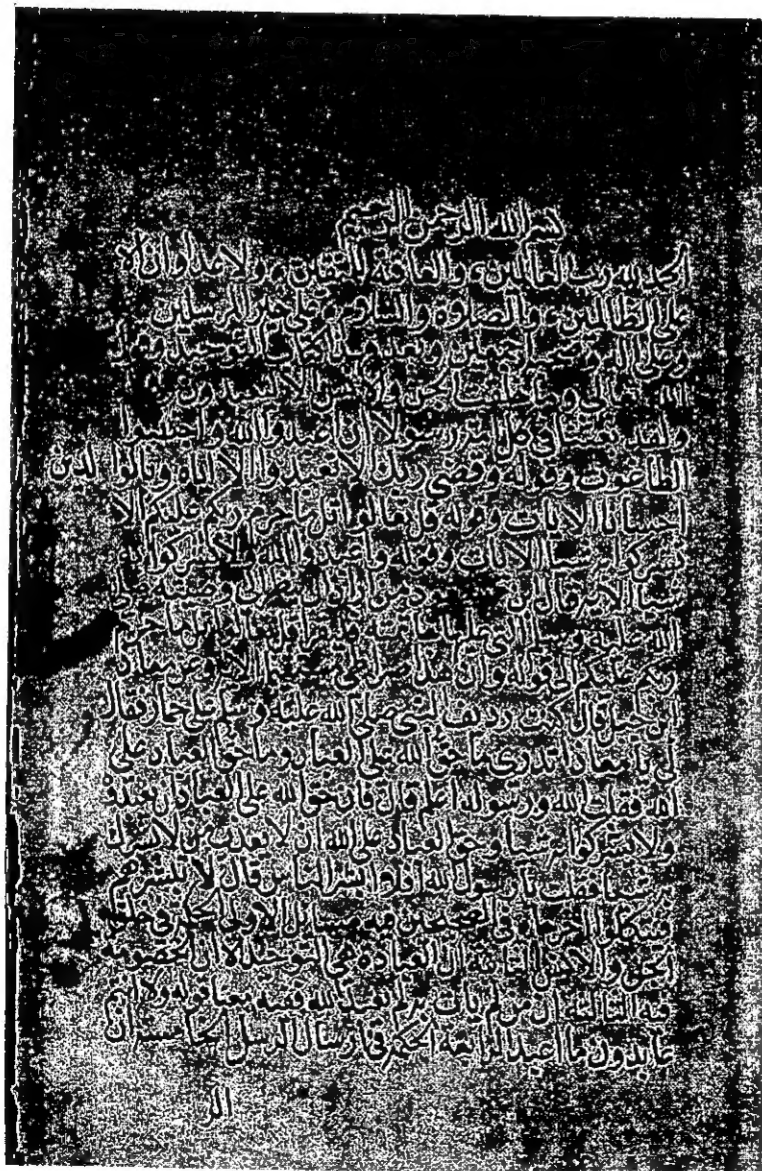 بسم الله الرحمن الرحيم
الحمد لله رب العالمين والعاقبة للمتقين ولا عدوان الا
على الظالمين والصلاة والسلام على خير المرسلين
وعلى اله وصحبه اجمعين وبعد هذا كتاب التوحيد وقول
الله تعالى وما خلقت الجن والانس الا ليعبدون
ولقد بعثنا في كل امة رسولا ان اعبدوا الله واجتنبوا
الطاغوت وقوله وقضى ربك الا تعبدوا الا اياه وبالوالدين
احسانا الايات وقوله قل تعالوا اتل ما حرم ربكم عليكم الا
تشركوا به شيئا الايات وقوله واعبدوا الله ولا تشركوا به
شيئا الايه قال ابن مسعود من اراد ان ينظر الى وصية
الله عليه وسلم التي عليها خاتمه فليقرا قل تعالوا اتل ما حرم
ربكم عليكم الى قوله وان هذا صراطي مستقيما الايه وعن معاذ
ابن جبل قال كنت رديف النبي صلى الله عليه وسلم على حمار فقال
لي يا معاذ اتدري ما حق الله على العباد وما حق العباد على
الله فقلت الله ورسوله اعلم قال فان حق الله على العباد ان يعبدوه
ولا يشركوا به شيئا وحق العباد على الله ان لا يعذب من لا يشرك
به شيئا فقلت يا رسول الله افلا ابشر الناس قال لا تبشرهم
فيتكلوا اخرجاه في الصحيحين فيه مسايل الاولى الحكمة في خلق
الجن والانس الثانية ان العبادة هي التوحيد لان الخصومة
فيه الثالثة ان من لم يات به لم يعبد الله ففيه معنا قوله ولا انتم
عابدون ما اعبد الرابعة الحكمة في ارسال الرسل الخامسه ان
الر